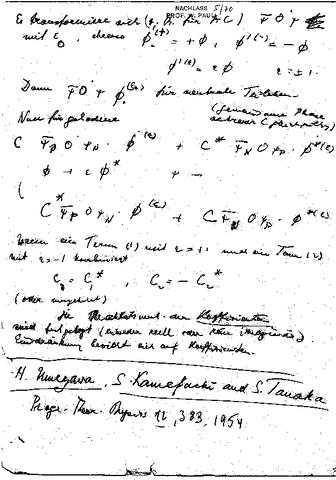 NACHLASS 5/70
PROF. W. PAULI
Es transformiere sich (z. B. für AC) Ψ̄ O Ψ
mit ε₀, ebenso φ'⁽⁺⁾ = + φ, φ'⁽⁻⁾ = − φ
φ'⁽ᵋ⁾ = ε φ ε = ± 1.
Dann Ψ̄ O Ψ φ⁽ᵋ⁾ für neutrale Teilchen.
Nun für geladene
C Ψ̄_P O Ψ_N · φ⁽ᵋ⁾ + C* Ψ̄_N O Ψ_P · φ*⁽ᵋ⁾
φ → ε φ*
C* Ψ̄_P O Ψ_N · φ⁽ᵋ⁾ + C Ψ̄_N O Ψ_P · φ*⁽ᵋ⁾
Wenn ein Term (1) mit ε = +1 und ein Term (2)
mit ε = −1 kombiniert
C₁ = C₁*, C₂ = − C₂*
(oder umgekehrt)
der Koeffizienten
sind festgelegt (entweder reell oder rein imaginär).
Einschränkung bezieht sich auf Koeffizienten.
H. Umezawa, S. Kamefuchi and S. Tanaka
Progr. Theor. Physics 12, 383, 1954